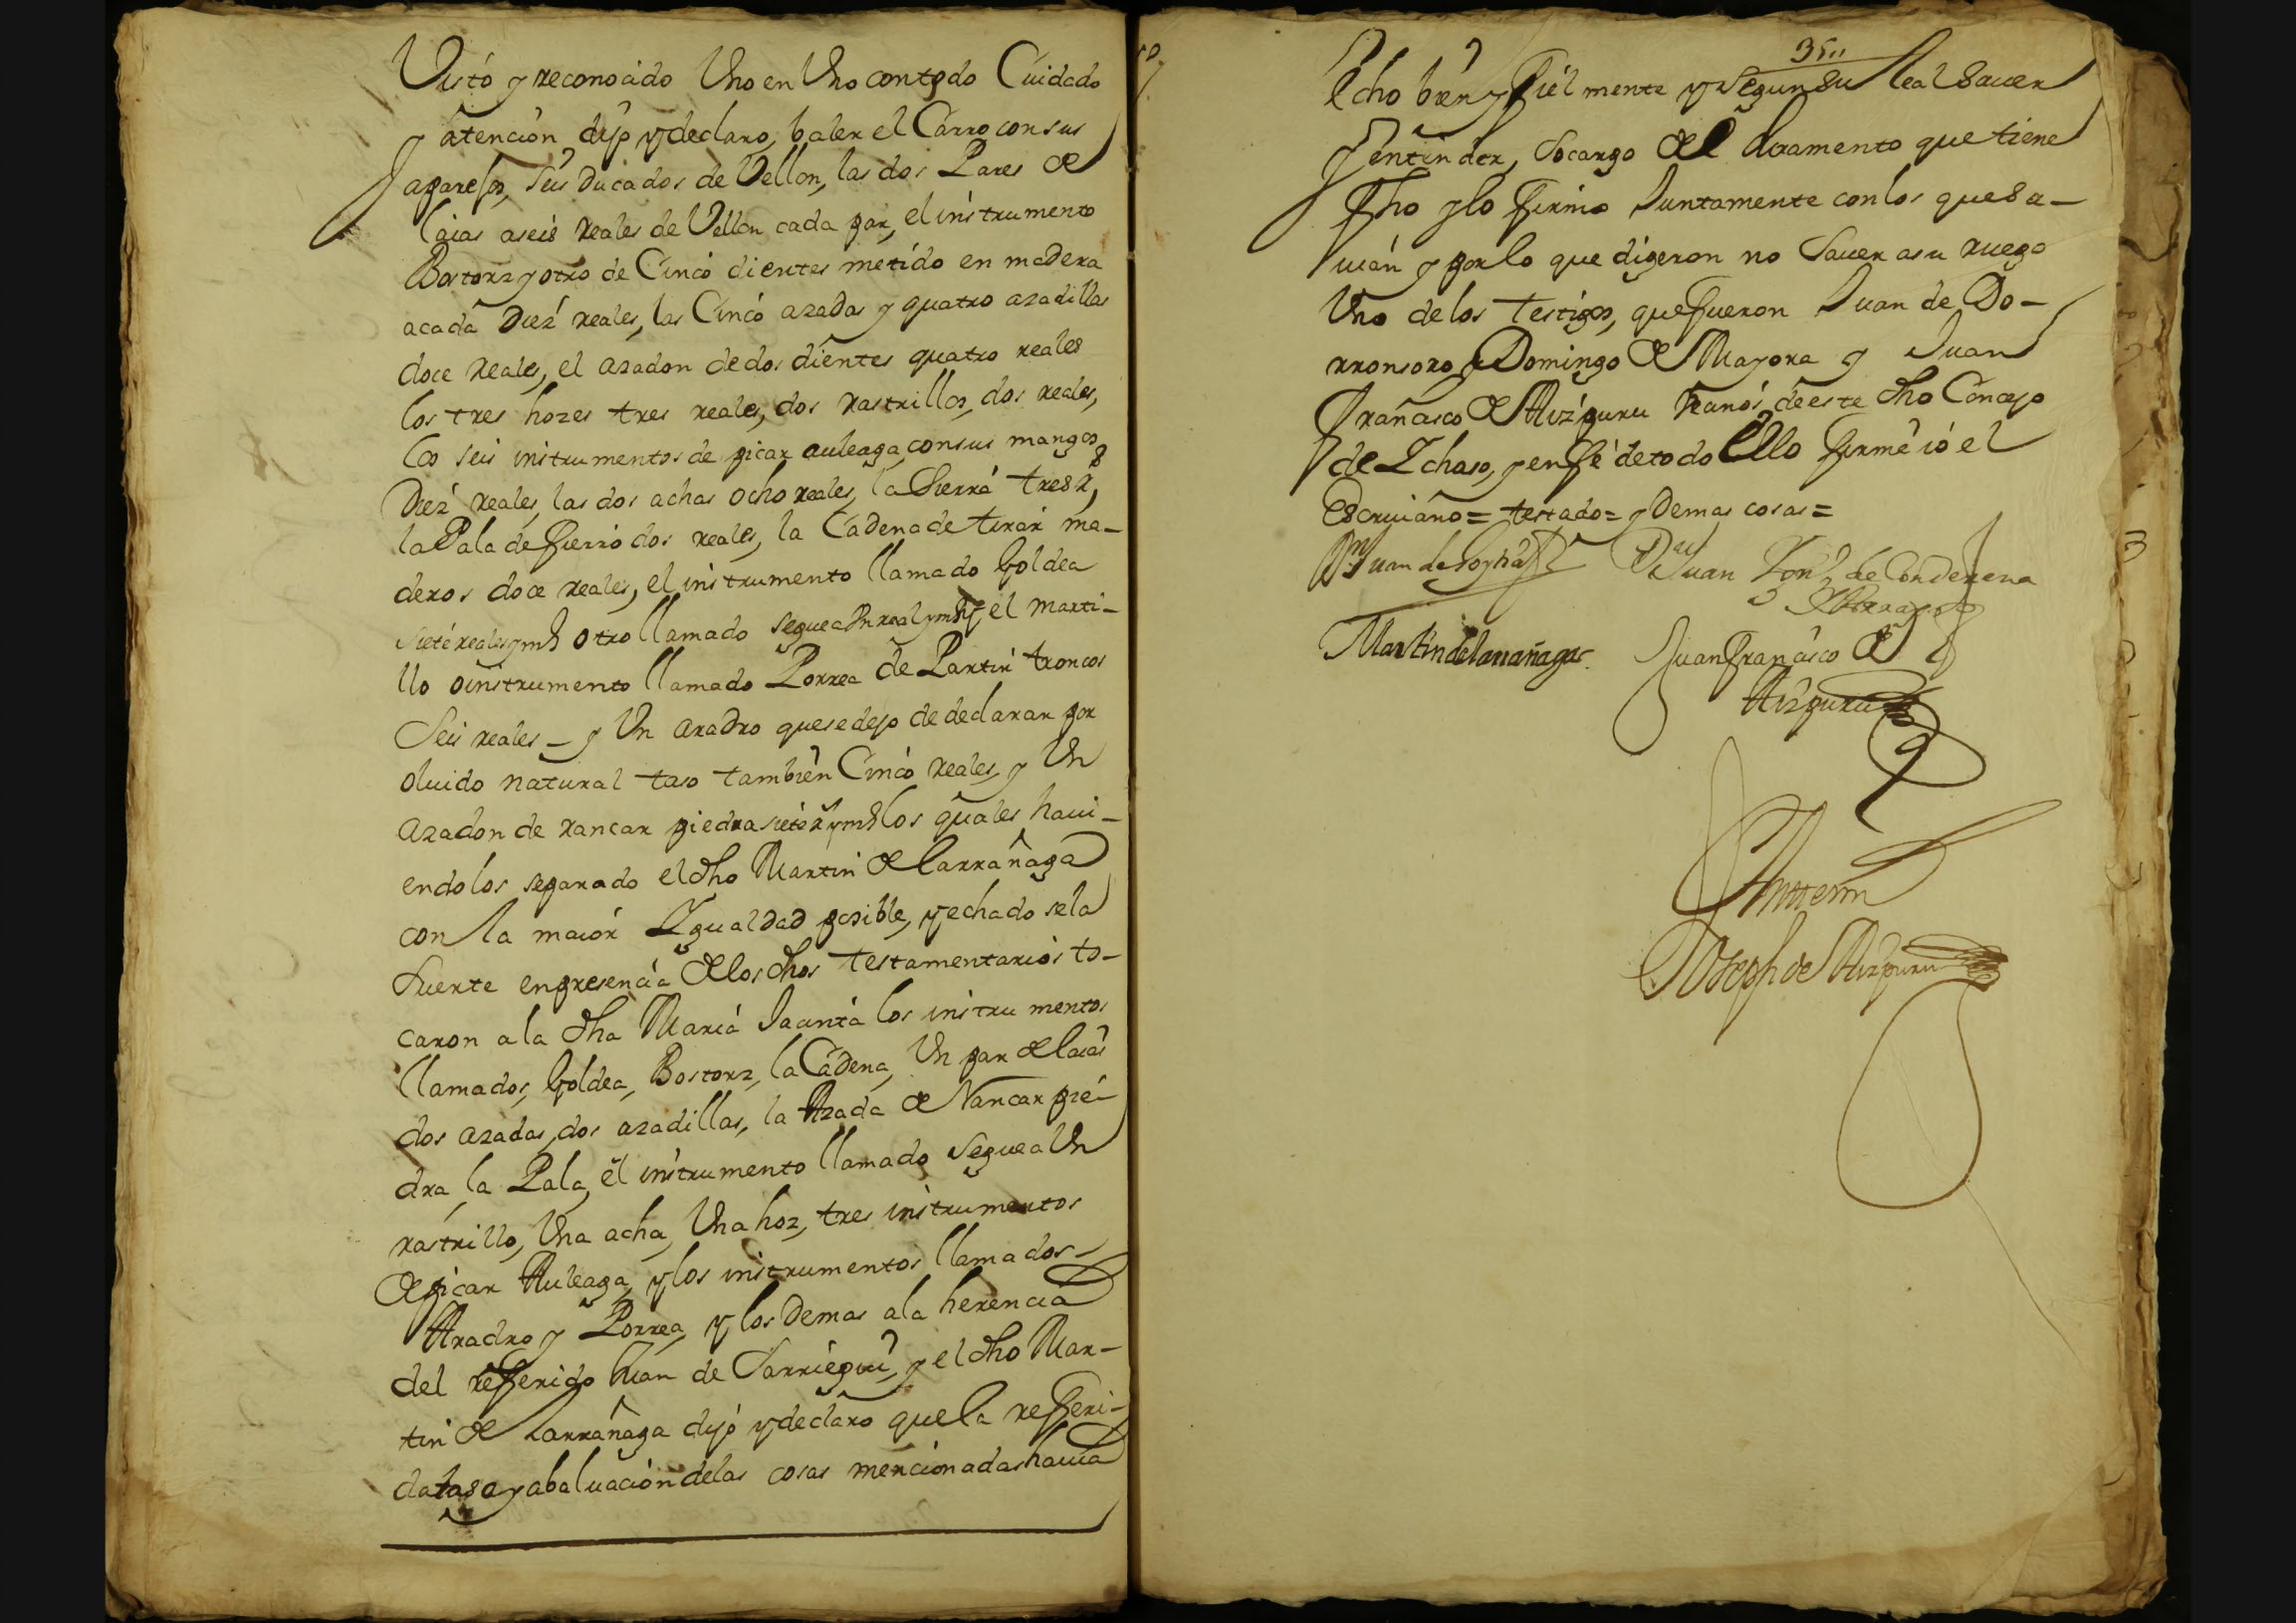 Visto y reconocido Uno en Uno con todo Cuidado
y atención dijo y declaro baler el Carro con sus
aparejos, seis Ducados de Vellon, las dos Pares de
laias a seis reales de Vellon cada par, el instrumento
Bostorz y otro de Cinco dientes metido en madera
a cada Diez reales, las Cinco azadas y quatro azadillas
doce reales, el azadon de dos dientes quatro reales
los tres hozes tres reales, dos rastrillos, dos reales,
los seis instrumentos de picar auleaga con sus mangos
Diez reales, las dos achas ocho reales, la Sierra tres rs,
la Pala de fierro dos reales, la Cadena de tirar ma-
deros doce reales, el instrumento llamado Goldea
siete reales y mo otro llamado seguea Un real y mo y el marti-
llo o instrumento llamado Porrea de Partir troncos
Seis reales - y Un aradro que se dejo de declarar por
oluido natural taso tambien Cinco reales, y Un
azadon de rancar piedra siete rs y mo los quales haui-
endolos separado el dho Martin de Larrañaga
con la maior Igualdad posible, y echado se la
suerte en presencia de los dhos testamentarios to-
caron a la dha Maria Jacinta los instrumentos
llamados, Goldea, Bostorz, la Cadena, Un par de laias
dos azadas, dos azadillas, la Azada de Rancar pie-
dra, la Pala, el instrumento llamado Seguea Un
rastrillo, Una acha, Una hoz, tres instrumentos
de picar Auleaga, y los instrumentos llamados -
Aradro y Porrea, y los Demas a la herencia
del refferido Juan de Sarriegui, y el dho Mar-
tin de Larrañaga dijo y declaro que la refferi-
da tasa y abaluación de las cosas mencionadas hauia
35
echo bien y fiel mente y segun su leal Sauer
y entender, so cargo del Juramento que tiene
fho y lo firmo Juntamente con los que sa-
uian y por lo que digeron no Sauer a su ruego
Uno de los testigos, que fueron Juan de Do-
rronsoro, Domingo de Mayora y Juan
Francisco de Aizpuru vecinos de este dho Concejo
de Ichaso, y en fe de todo Ello firme io el
Escriuano = testado = y Demas cosas =
Dn Juan de
Dn Juan de Conderena
Martin de larrañaga
Juan Francisco de
Aizpuru
Ante mi
Joseph de Aizpuru